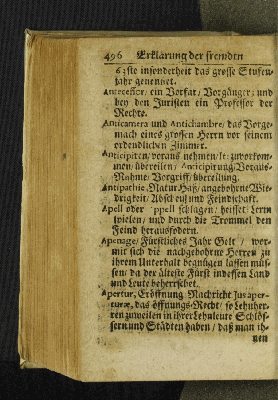 496 Erklärung der fremden
63ste insonderheit das grosse Stufen-
jahr genennet.
Antecessor, ein Vorfar/ Vorgänger; und
bey den Juristen ein Professor der
Rechte.
Anticamera und Antichambre, das Vorge-
mach eines grossen Herrn vor seinem
ordendlichen Zimmer.
Anticipiren/ voraus nehmen/ zuvorkom-
men/ übereilen/ Anticipirung/ Voraus-
Nahme/ Vorgriff/ übereilung.
Antipathie, Natur Haß/ angebohrne Wie-
drigkeit/ Abscheu und Feindschafft.
Apell oder Appell schlagen/ heisset Lerm
spielen/ und durch die Trommel den
Feind herausfodern.
Apenage/ Fürstliches Jahr Gelt / wor-
mit sich die nachgebohrne Herren zu
ihrem Unterhalt begnügen lassen müs-
sen/ da der älteste Fürst indessen Land
und Leute beherrschet.
Apertur, Eröffnung Nachricht Jus aper-
turæ, das öffnungs-Recht/ so Lehnher-
ren zuweilen in ihrer Lehnleute Schlös-
sern und Städten haben/ daß man ih-
nen